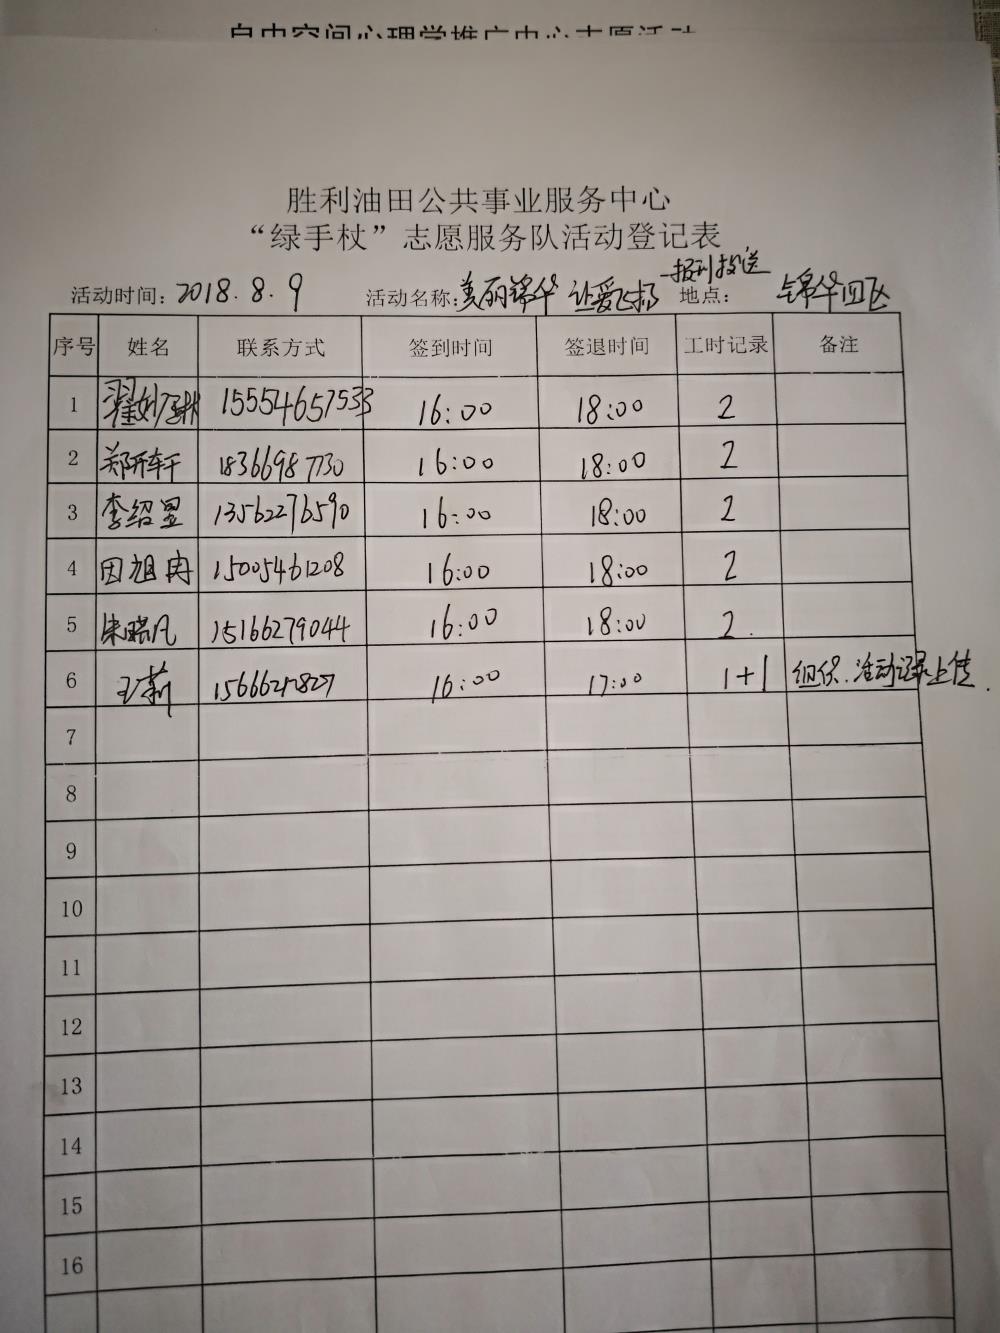 自由空间心理学推广中心志愿活动
胜利油田公共事业服务中心
“绿手杖”志愿服务队活动登记表
活动时间：2018.8.9 活动名称：美丽锦华 让爱飞扬—报刊投送 地点： 锦华四区
序号 姓名 联系方式 签到时间 签退时间 工时记录 备注
1 翟妙 15554657533 16:00 18:00 2
2 郑开轩 18366987730 16:00 18:00 2
3 李绍昱 13562276590 16:00 18:00 2
4 田旭冉 15005461208 16:00 18:00 2
5 朱晓凡 15166279044 16:00 18:00 2.
6 王莉 16:00 17:00 1+1 组织.活动记录上传.
7
8
9
10
11
12
13
14
15
16